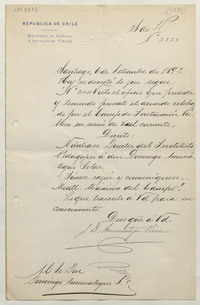 REPUBLICA DE CHILE
MINISTERIO DE JUSTICIA
E INSTRUCCION PUBLICA
Nº 2528
Santiago, 6 de Setiembre de 1892.
Hoy se decretó lo que sigue:
Nº 2008 Vistos el oficio que precede
y teniendo presente el acuerdo celebra-
do por el Consejo de Instruccion Pú-
blica en sesion de 5 del corriente,
Decreto:
Nómbrase Director del Instituto
Pedagójico a don Domingo Amuná-
tegui Solar.
Tómese razon y comuníquese.
Montt. Máximo del Campo".
Lo que trascribo a Ud. para su
conocimiento.
Dios gue. a Ud.
Al Sr. Don
Domingo Amunátegui S.